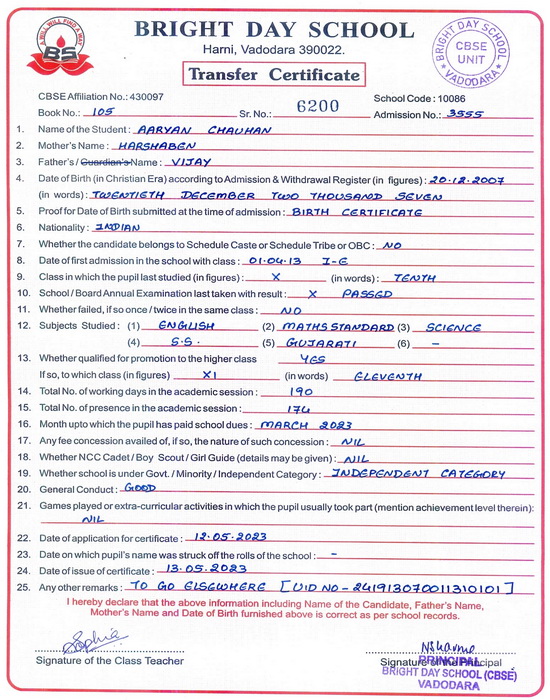 A WILL WILL FIND A WAY
BS
BRIGHT DAY SCHOOL
Harni, Vadodara 390022.
Transfer Certificate
BRIGHT DAY SCHOOL
CBSE
UNIT
VADODARA
CBSE Affiliation No.: 430097 School Code : 10086
Book No.: 105 Sr. No.: 6200 Admission No.: 3555
1. Name of the Student : AARYAN CHAUHAN
2. Mother's Name : HARSHABEN
3. Father's / Guardian's Name : VIJAY
4. Date of Birth (in Christian Era) according to Admission & Withdrawal Register (in figures) : 20.12.2007
(in words) : TWENTIETH DECEMBER TWO THOUSAND SEVEN
5. Proof for Date of Birth submitted at the time of admission : BIRTH CERTIFICATE
6. Nationality : INDIAN
7. Whether the candidate belongs to Schedule Caste or Schedule Tribe or OBC : NO
8. Date of first admission in the school with class : 01.04.13 I-E
9. Class in which the pupil last studied (in figures) : X (in words) : TENTH
10. School / Board Annual Examination last taken with result : X PASSED
11. Whether failed, if so once / twice in the same class : NO
12. Subjects Studied : (1) ENGLISH (2) MATHS STANDARD (3) SCIENCE
(4) S.S. (5) GUJARATI (6) -
13. Whether qualified for promotion to the higher class YES
If so, to which class (in figures) XI (in words) ELEVENTH
14. Total No. of working days in the academic session : 190
15. Total No. of presence in the academic session : 174
16. Month upto which the pupil has paid school dues : MARCH 2023
17. Any fee concession availed of, if so, the nature of such concession : NIL
18. Whether NCC Cadet / Boy Scout / Girl Guide (details may be given) : NIL
19. Whether school is under Govt. / Minority / Independent Category : INDEPENDENT CATEGORY
20. General Conduct : GOOD
21. Games played or extra-curricular activities in which the pupil usually took part (mention achievement level therein):
NIL
22. Date of application for certificate : 12.05.2023
23. Date on which pupil's name was struck off the rolls of the school : -
24. Date of issue of certificate : 13.05.2023
25. Any other remarks : TO GO ELSEWHERE [UID NO - 241913070011310101]
I hereby declare that the above information including Name of the Candidate, Father's Name,
Mother's Name and Date of Birth furnished above is correct as per school records.
Sophia
Signature of the Class Teacher Signature of the Principal
PRINCIPAL
BRIGHT DAY SCHOOL (CBSE)
VADODARA